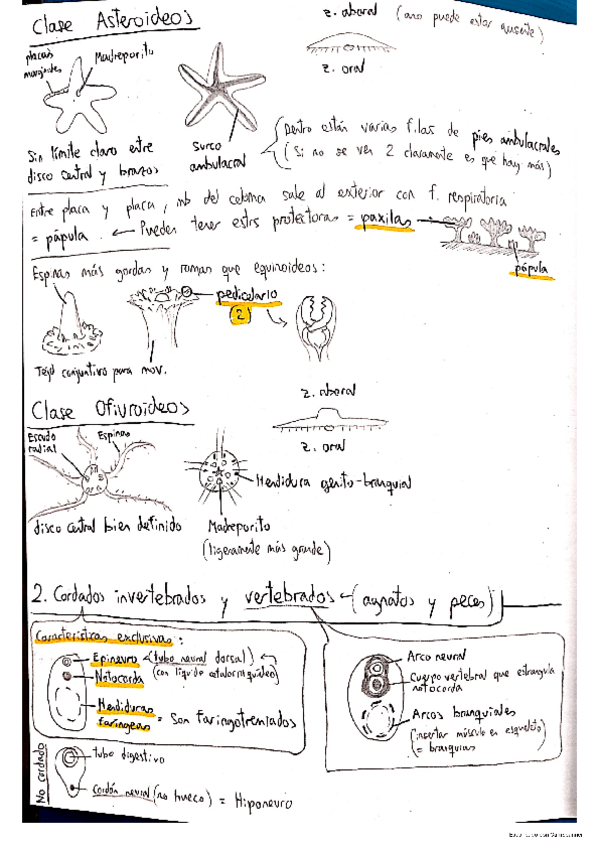 Clase Asteroideos
z. aboral (ano puede estar ausente)
z. oral
placas
marginales
Madreporito
Sin límite claro entre
disco central y brazos
Surco
ambulacral
Dentro están varias filas de pies ambulacrales
(Si no se ven 2 claramente es que hay más)
Entre placa y placa, mb del celoma sale al exterior con f. respiratoria
= pápula. ← Pueden tener estrs protectoras = paxilas
pápula
Espinas más gordas y romas que equinoideos:
pedicelario
2
Tejid conjuntivo para mov.
Clase Ofiuroideos
z. aboral
z. oral
Escudo
radial
Espinas
disco central bien definido
Hendidura genito-branquial
Madreporito
(ligeramente más grande)
2. Cordados invertebrados y vertebrados (agnatos y peces)
Características exclusivas:
Epineuro (tubo neural dorsal)
(con líquido cefalorraquídeo)
Notocorda
Hendiduras
faríngeas = son faringotremados
Arco neural
Cuerpo vertebral que estrangula
notocorda
Arcos branquiales
(insertar músculo en esqueleto)
(= branquias)
No cordado
tubo digestivo
cordón neural (no hueco) = Hiponeuro